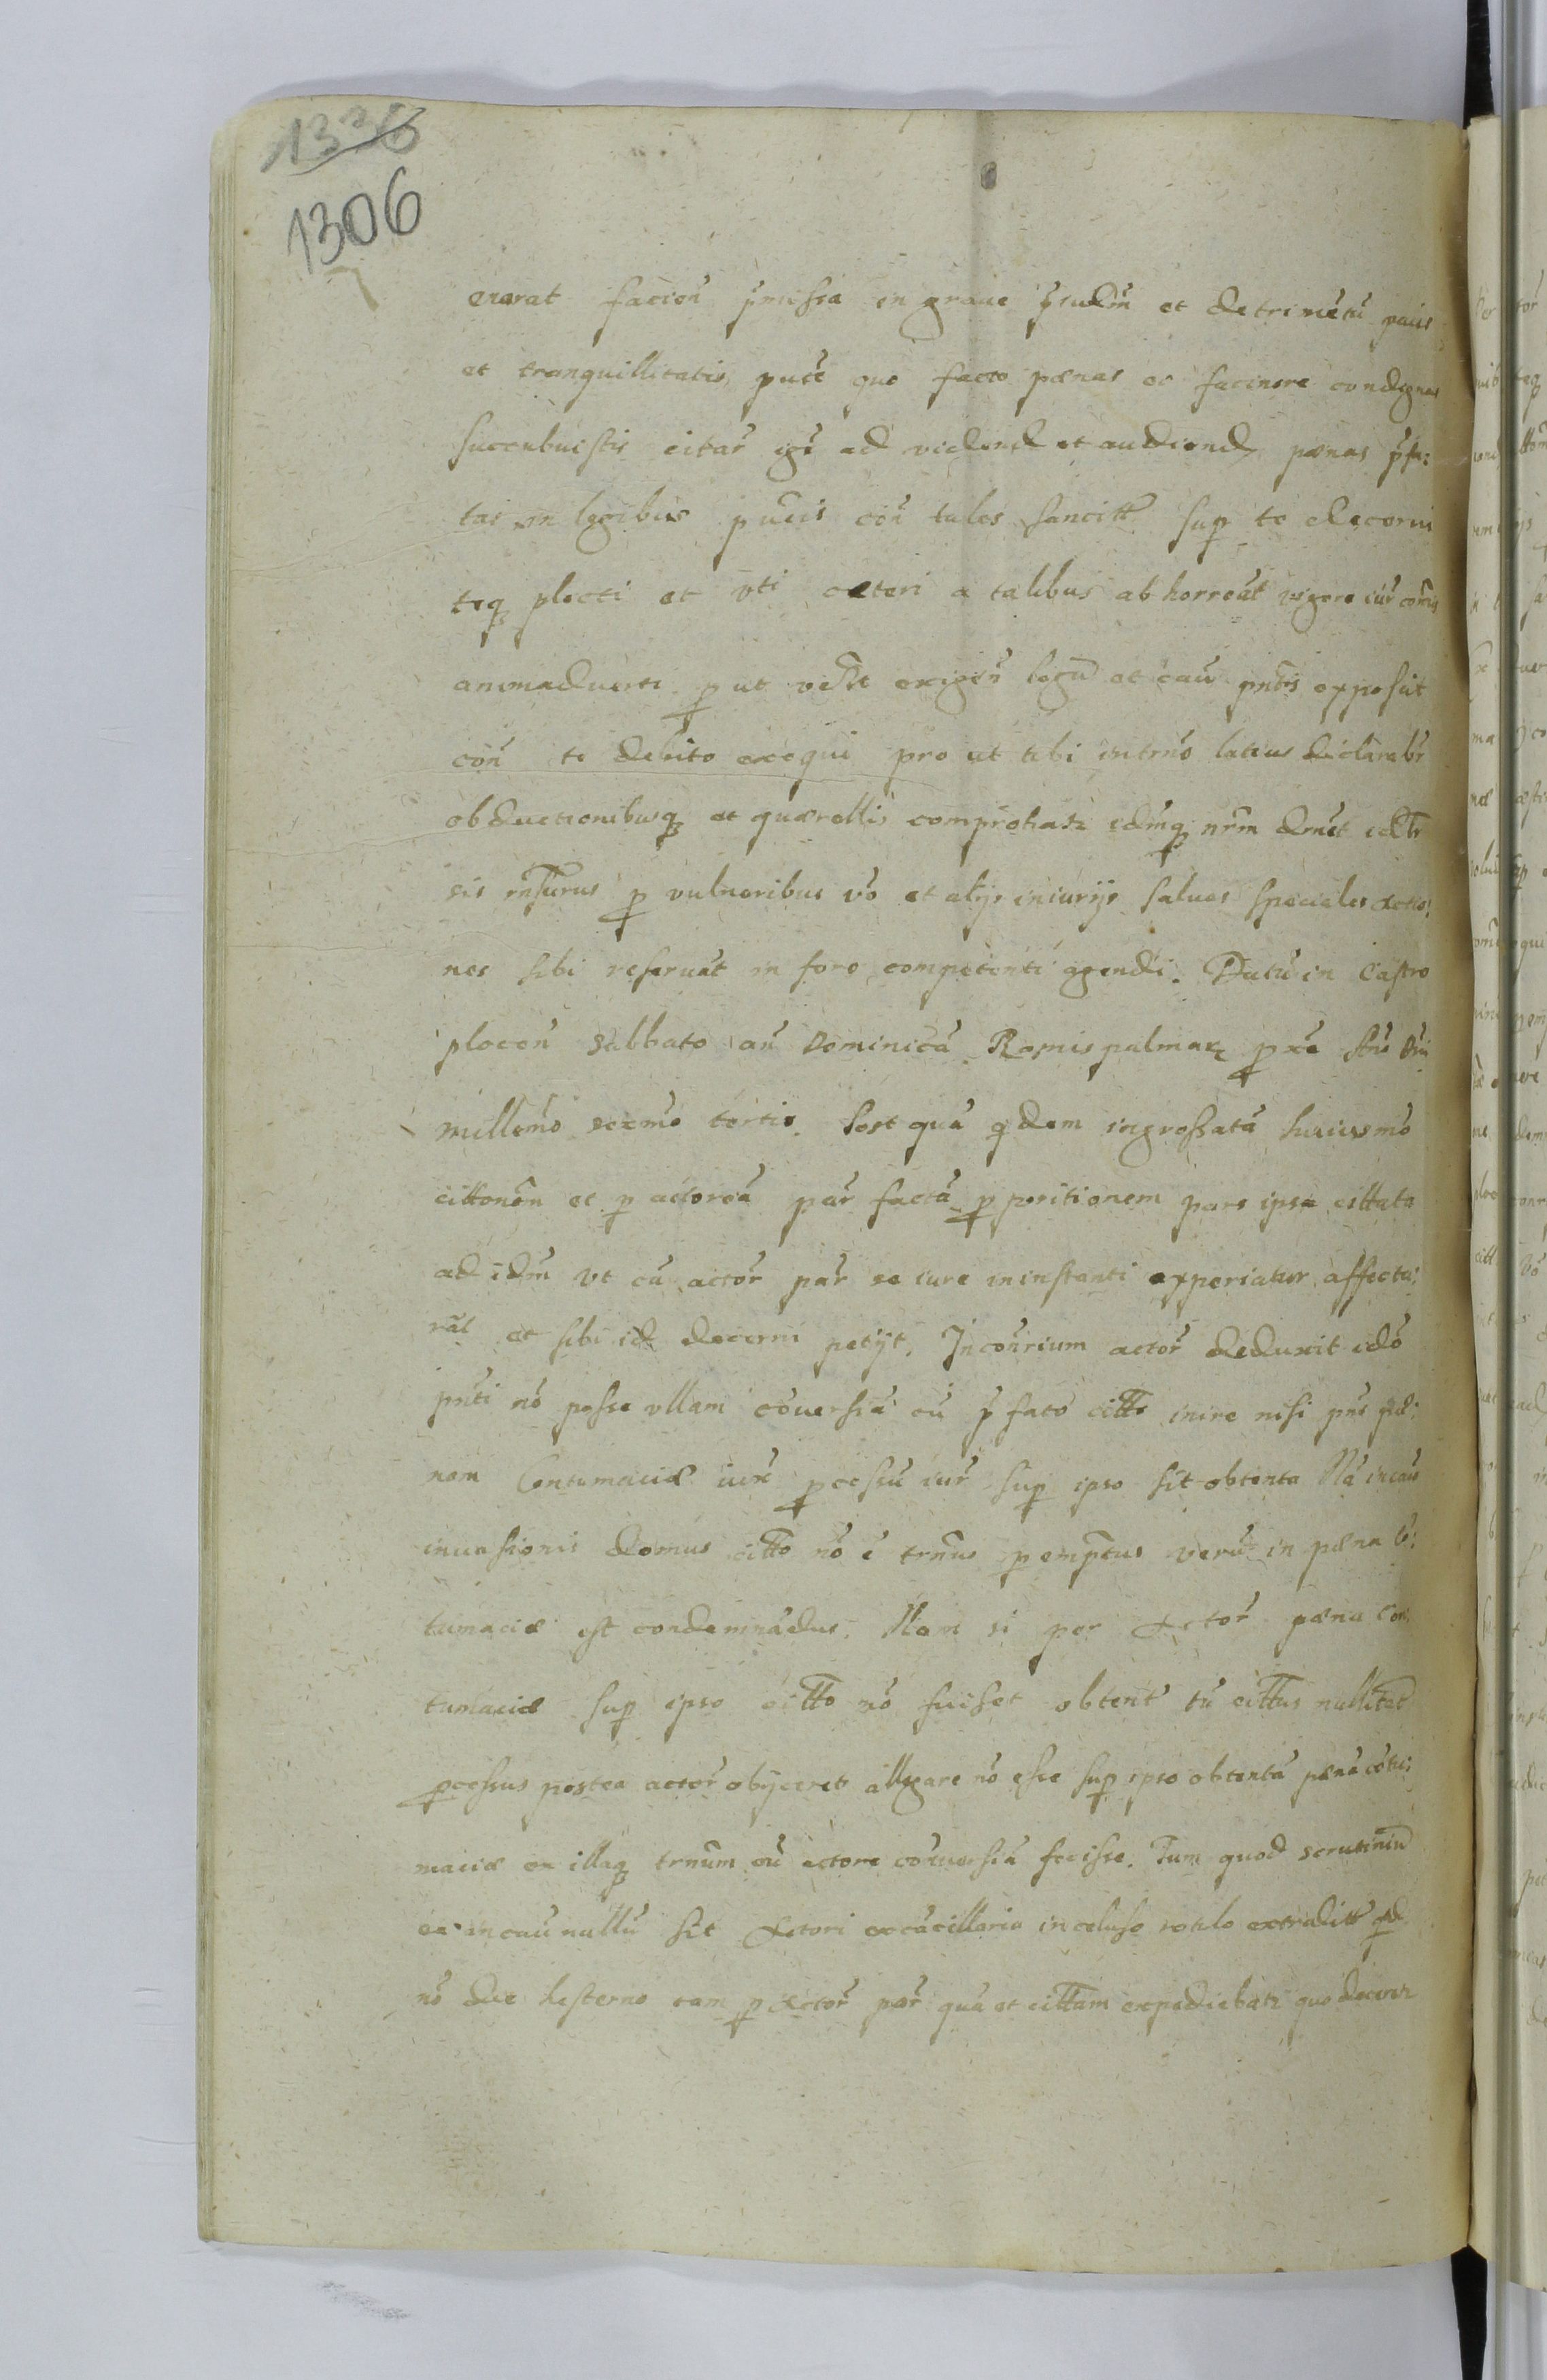 1336
1306
erarat facien p̃missa in graue p̃iudm̃ et detrimẽtũ pacis
et tranquillitatis puce quo facto pænas ac facinore condignas
succubuistis citar̃ igr̃ ad vidend et audiend pænas p̃fa:
tas in legibus pucis con̄ tales sancitt sup te decerni
teq plecti et vti cæteri a talibus abhorreãt vigore iur̃ cõnis
animaduerti prout velit exigen̄ legũ et cau pñtis exposit
con̄ te debito exequi pro ut tibi in trño latius declarabr̃
obductionibusq et quærellis comprobatr idmq nrm
sis rñsurus p vulneribus võ et alijs iniurijs saluas speciales actio:
nes sibi reseruãt in foro competenti agendi. Datũ in Castro
plocen̄ Sabbato añ Dominicã Ramispalmarũ pxe Año Dñi
millemo sexmo tertio. Post quã qdem ingrossatã huiusmõ
cittonem et p actoreã par̃ factã ppositionem pars ipsa cittata
ad idm̃ vt cũ actor̃ par̃ se iure in instanti experiatur affecta:
rat et sibi id decerni petijt. In conr̃rium actor̃ deduxit ido
pñti nõ posse vllam cõuersiã cũ p̃fato citto inire nisi pus pæ:
nam Contumaciæ iuxᵗ pcessũ iur̃ sup ipso sit obtenta Nã in cau
inuasionis domus citto nõ ẽ trñus pemptus verũ in pæna cõ:
tumaciæ est condemnãdus. Nam si per Actor̃ pæna Con:
tumaciæ sup ipso citto nõ fuisset obtent tũ cittus nullitat
pcessus postea actor̃ obijceret allgare nõ esse sup ipso obtentã pænã cõtu:
maciæ ex illaq trñum cũ actore cõtrouersiã fecisse. Tum quod scrutiniũ
ex in cau nullũ sit Actori ex cãcillaria incluso rotulo extraditt qd
nõ die hesterno tam p Actor̃ par̃ quã et cittam expediebatr quo